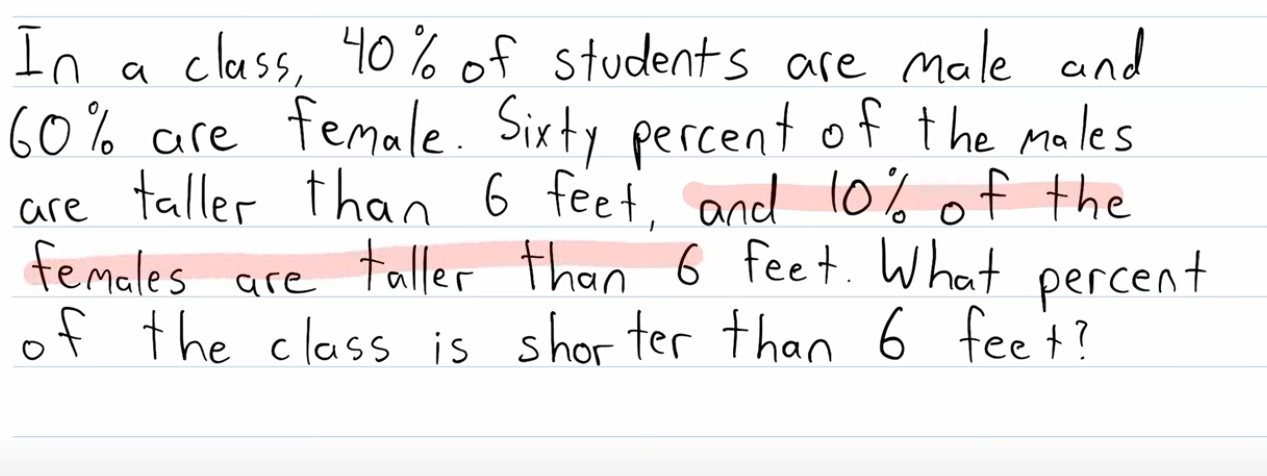 In a class, 40% of students are male and
60% are female. Sixty percent of the males
are taller than 6 feet, and 10% of the
females are taller than 6 feet. What percent
of the class is shorter than 6 feet?